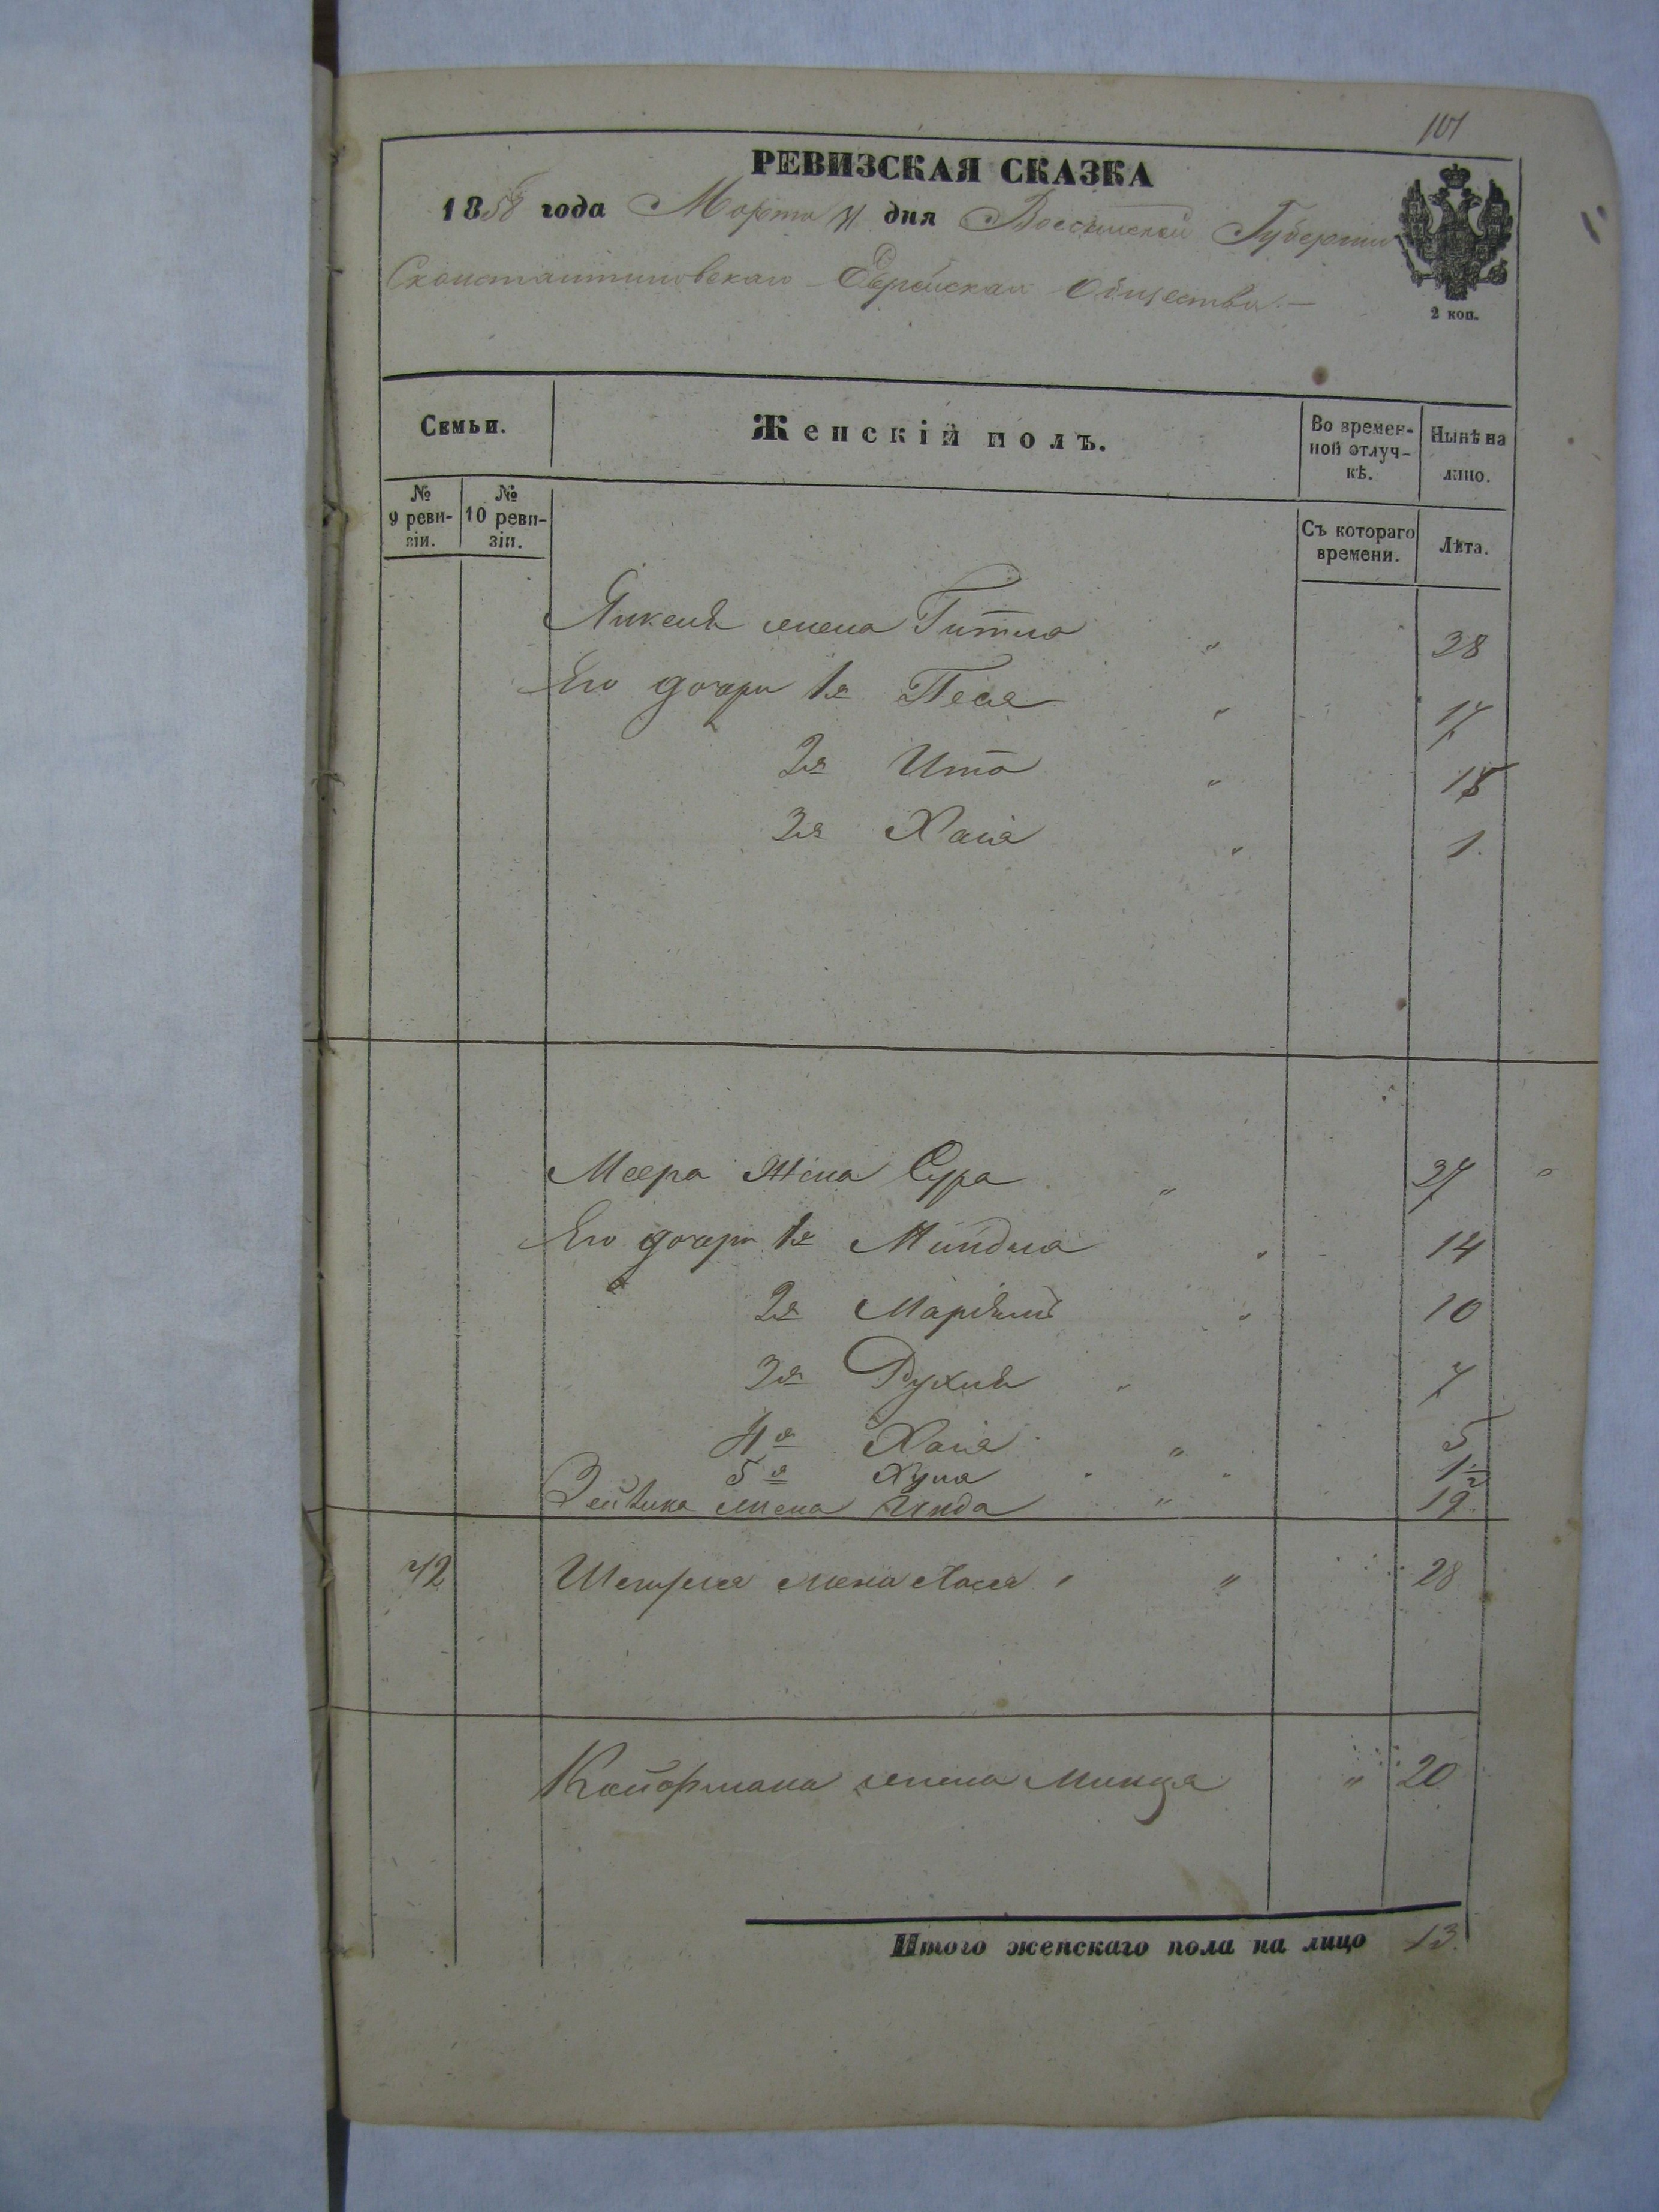 101
РЕВИЗСКАЯ СКАЗКА
1858 года Марта 31 дня Волынской Губернии
Сконстантиновскаго Еврейскаго Общества.—
2 коп.
Семьи.
Женскій полъ.
Во времен-
ной отлуч-
кѣ.
Нынѣ на
лицо.
№
9 реви-
зіи.
№
10 реви-
зіи.
Съ котораго
времени.
Лѣта.
Янкеля жена Гитля " 38
Его дочери 1я Песя " 17
2я Ита " 15
3я Хая " 1.
Меера жена Сура " 37
Его дочери 1я Миндля " 14
2я Маріямъ " 10
3я Рухля " 7
4я Хая " 5
5я Хуна " 1½
жена " 19
42 жена Хася " " 28
Койфмана жена Минця " 20
Итого женскаго пола на лицо 13.